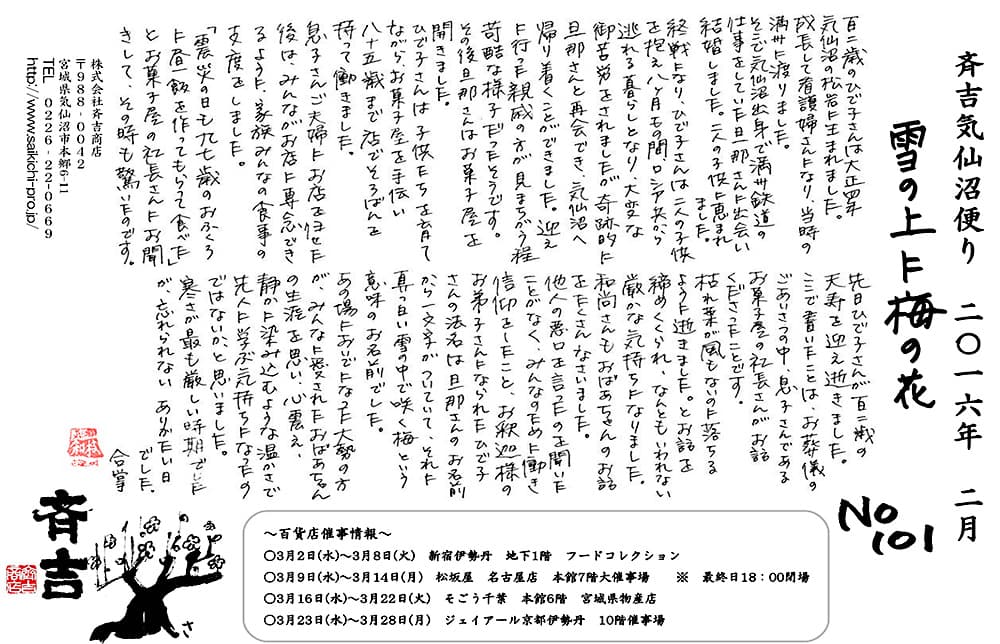 斉吉気仙沼便り 二〇一六年 二月
No 101
雪の上に梅の花
百二歳のひで子さんは大正四年
気仙沼の松岩に生まれました。
成長して看護婦さんになり、当時の
満州に渡りました。
そこで気仙沼出身で満州鉄道の
仕事をしていた旦那さんに出会い
結婚しました。二人の子供に恵まれ
ました。
終戦になり、ひで子さんは二人の子供
を抱え八ヶ月もの間、ロシア兵から
逃れる暮らしとなり、大変な
御苦労をされましたが奇跡的に
旦那さんと再会でき、気仙沼へ
帰り着くことができました。迎え
に行った親戚の方が見まちがう程
苛酷な様子だったそうです。
その後旦那さんはお菓子屋を
開きました。
ひで子さんは子供たちを育て
ながら、お菓子屋を手伝い
八十五歳まで店でそろばんを
持って働きました。
息子さんご夫婦にお店をまかせた
後は、みんながお店に専念でき
るように、家族みんなの食事の
支度をしました。
「震災の日も九七歳のおふくろ
に昼ご飯を作ってもらって食べた」
とお菓子屋の社長さんにお聞
きして、その時も驚いたのです。
先日ひで子さんが百二歳の
天寿を迎え逝きました。
ここで書いたことは、お葬儀の
ごあいさつの中、息子さんである
お菓子屋の社長さんがお話
くださったことです。
枯れ葉が風もないのに落ちる
ように逝きました。とお話を
締めくくられ、なんともいわれない
厳かな気持ちになりました。
和尚さんもおばあちゃんのお話
をたくさんなさいました。
他人の悪口を言ったのを聞いた
ことがなく、みんなのために働き
信仰をしたこと、お釈迦様の
お弟子さんになられたひで子
さんの法名は旦那さんのお名前
から一文字がついていて、それに
真っ白い雪の中で咲く梅という
意味のお名前でした。
あの場においでになった大勢の方
が、みんなに愛されたおばあちゃん
の生涯を思い、心震え、
静かに染み込むような温かさで
先人に学ぶ気持ちになったの
ではないか、と思いました。
寒さが最も厳しい時期でした
が、忘れられない ありがたい日
でした。
合掌
斉吉
さ
株式会社斉吉商店
〒988-0042
宮城県気仙沼市本郷6-11
TEL 0226-22-0669
http://www.saikichi-pro.jp/
～百貨店催事情報～
○3月2日(水)～3月8日(火) 新宿伊勢丹 地下1階 フードコレクション
○3月9日(水)～3月14日(月) 松坂屋 名古屋店 本館7階大催事場 ※ 最終日18：00閉場
○3月16日(水)～3月22日(火) そごう千葉 本館6階 宮城県物産店
○3月23日(水)～3月28日(月) ジェイアール京都伊勢丹 10階催事場